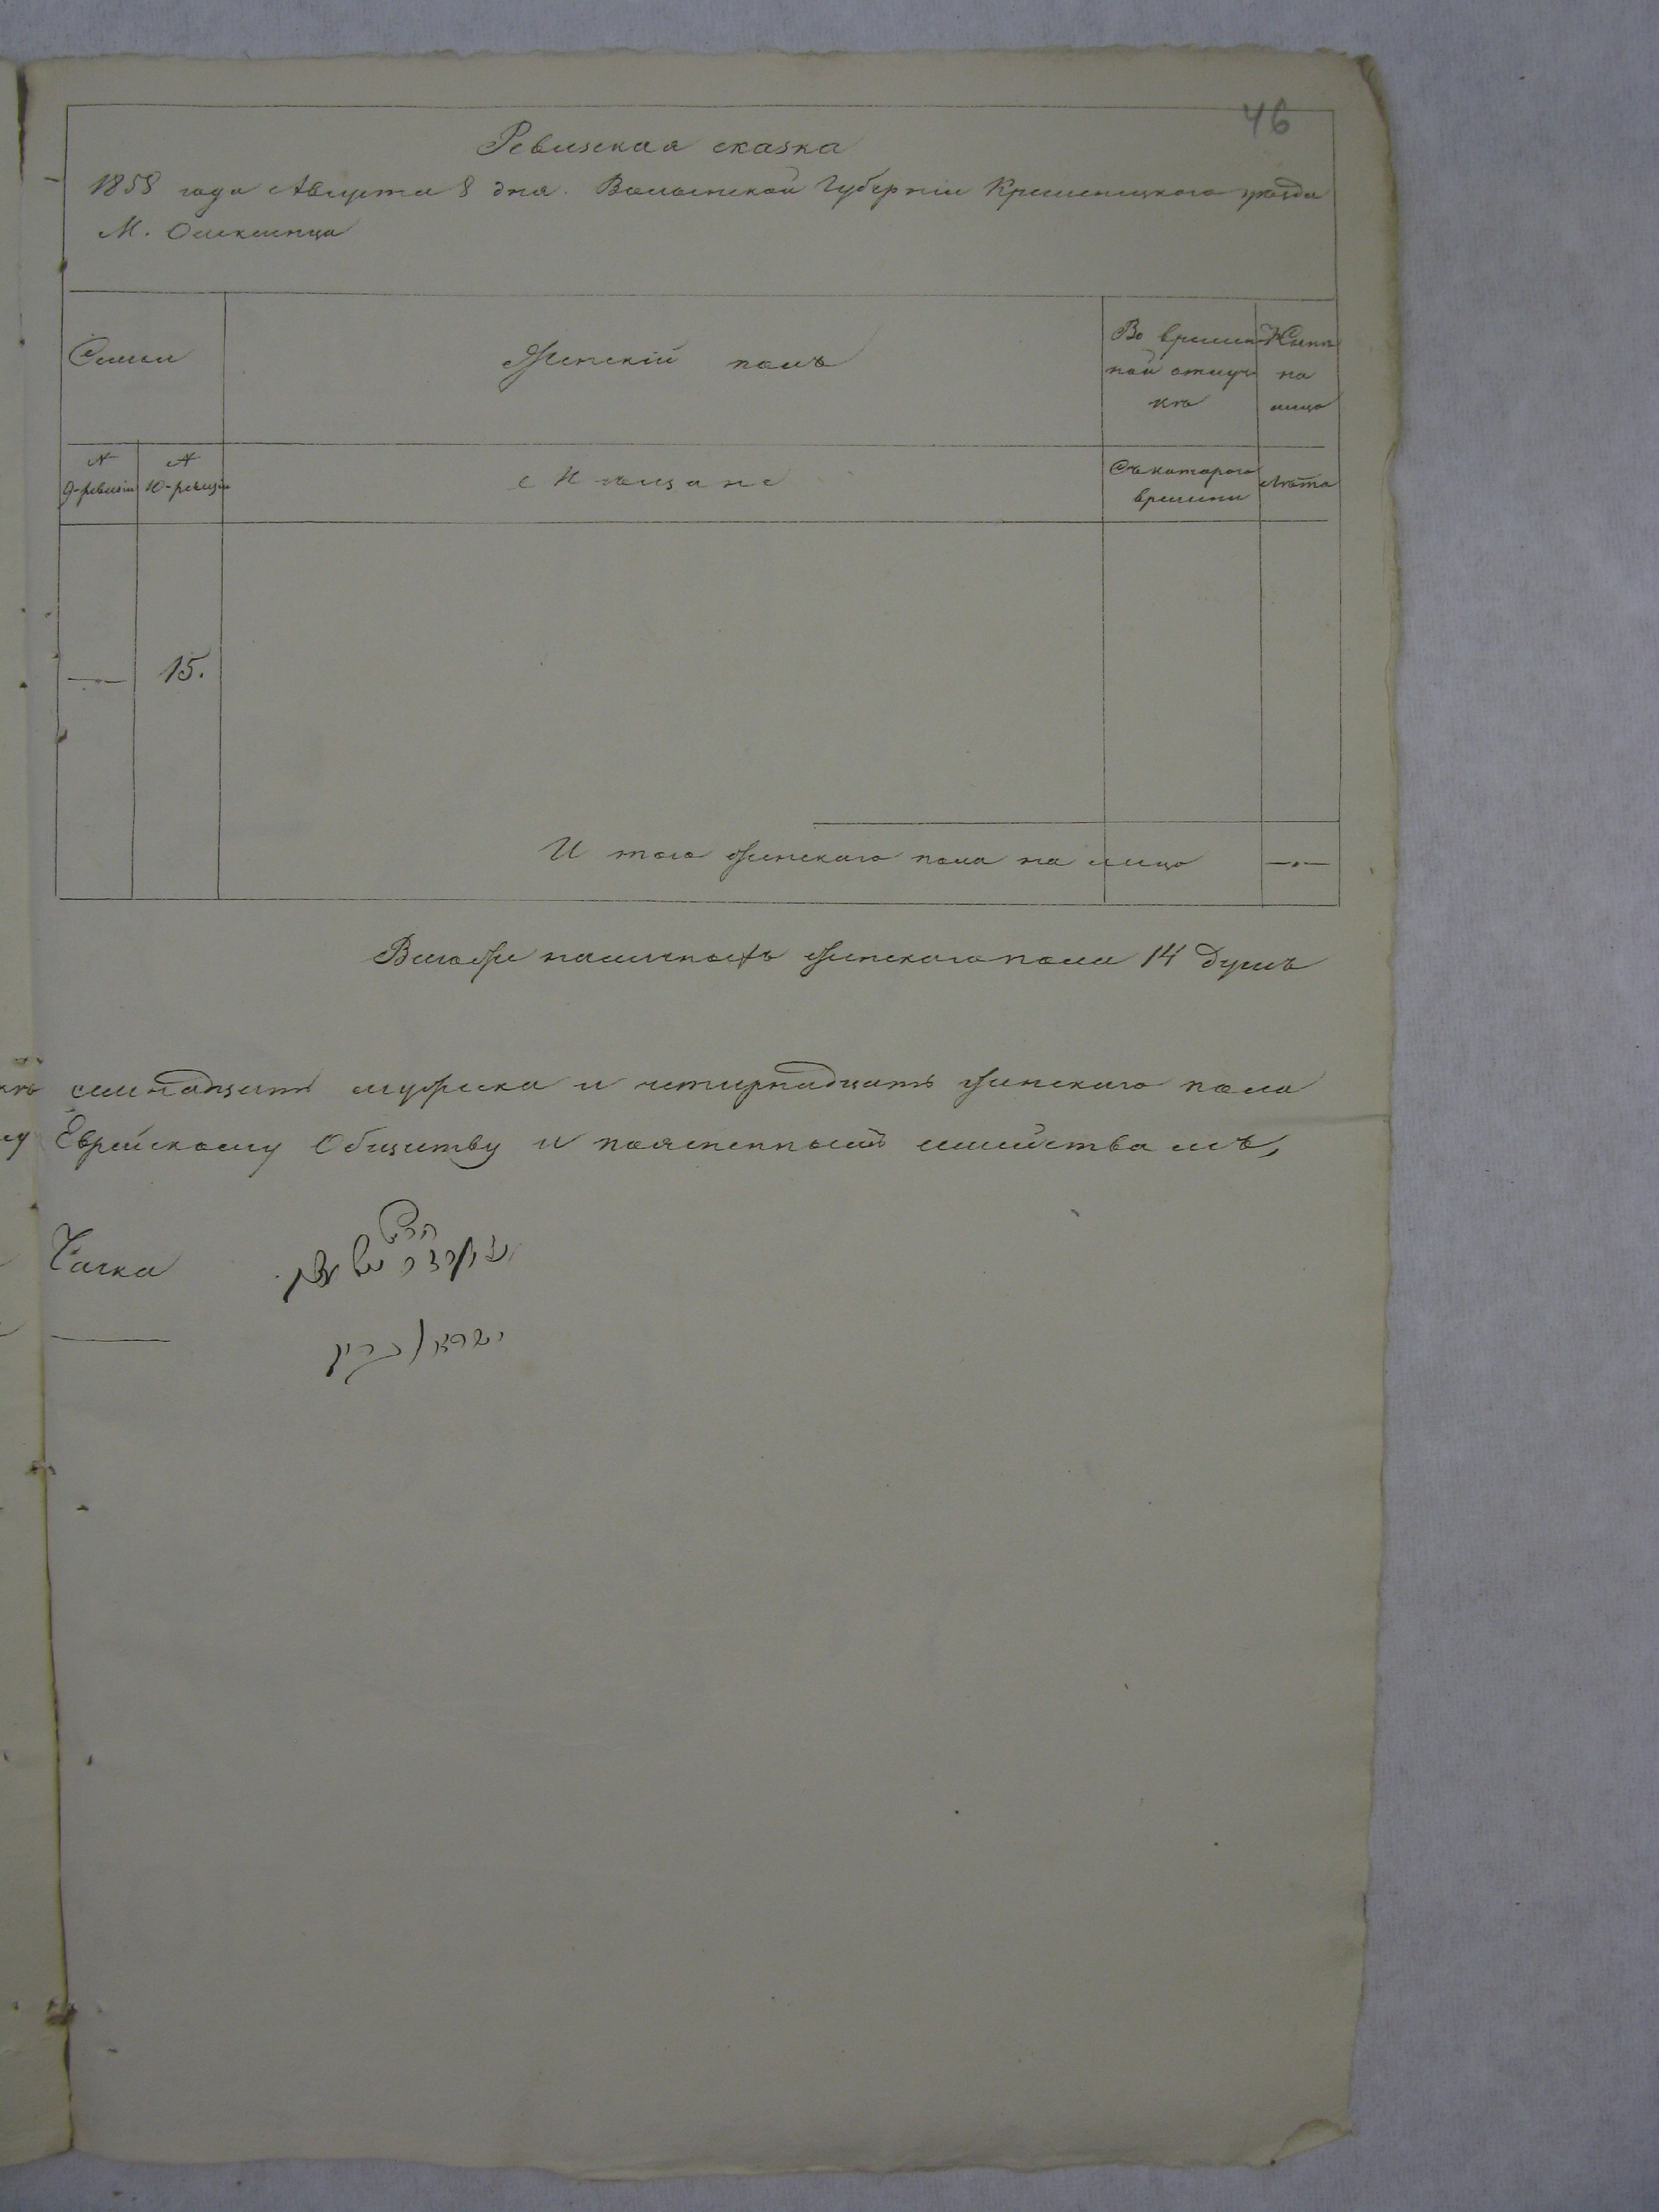 46
Ревизская сказка
1858 года Августа 8 дня. Волынской Губерніи Кременецкого уезда
М. Олексинца
Семьи
Женскій полъ
Во времен
ной отлуч
кѣ
Нынѣ
на
лицо
№
9-ревизіи
№
10-ревизіи
Мѣщане
Съ которого
времени
Лѣта
—
15.
И того женскаго пола на лицо —
Всего же наличность женскаго пола 14 душъ
семнадцать мужска и четирнадцать женскаго пола
Еврейскому Обществу и поясненной семействамъ,